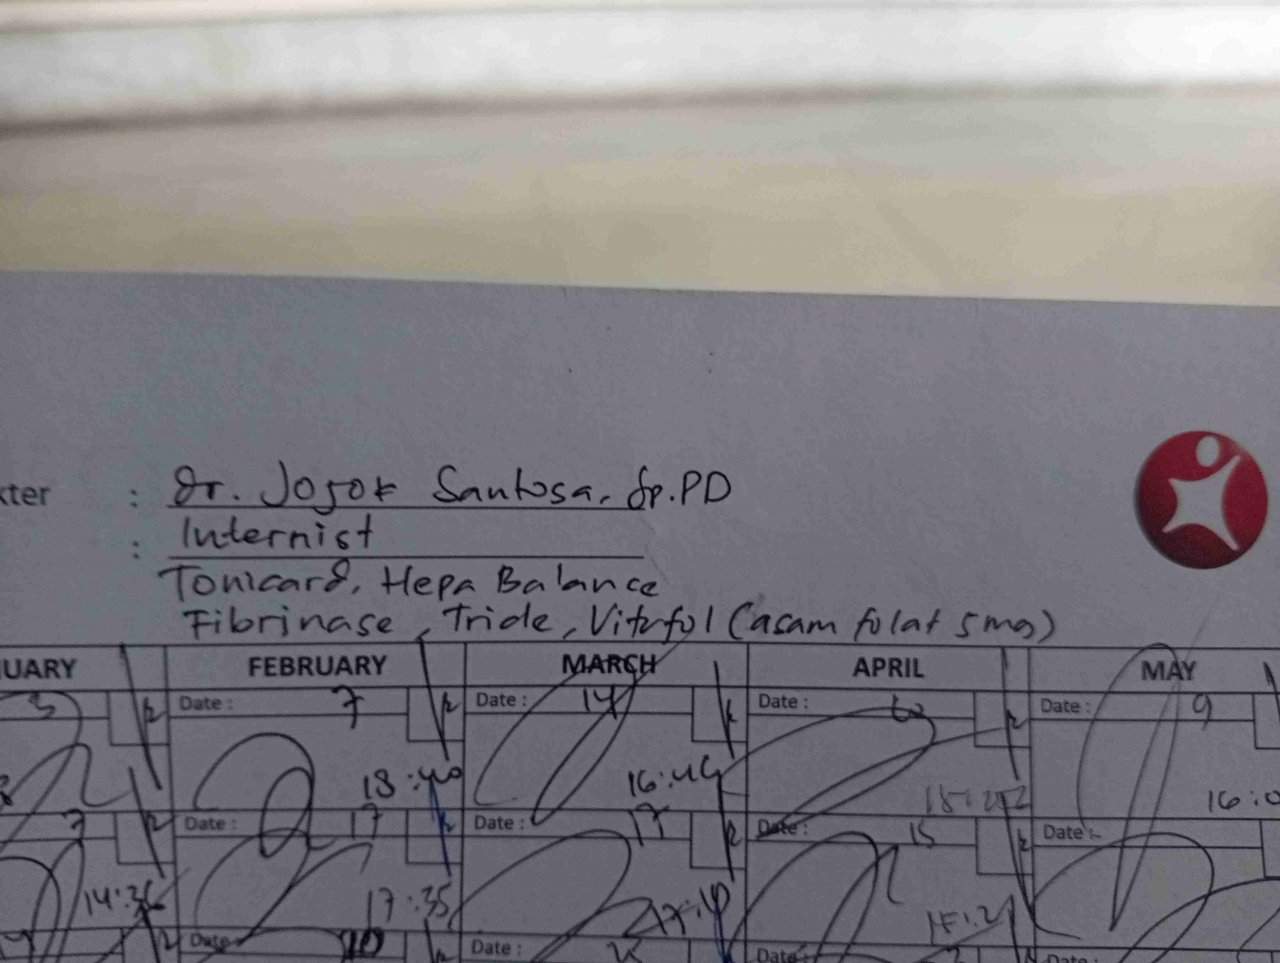 kter : dr. Jojok Santosa, Sp.PD
: Internist
Tonicard, Hepa Balance
Fibrinase, Tride, Vitaful (asam folat 5mg)
UARY FEBRUARY MARCH APRIL MAY
3 Date : 7 Date : 14 Date : Date : 9
18:40 16:44
7 Date : 17 Date : 17 Date : 15 Date :
14:36 17:35
Date Date : Date Date